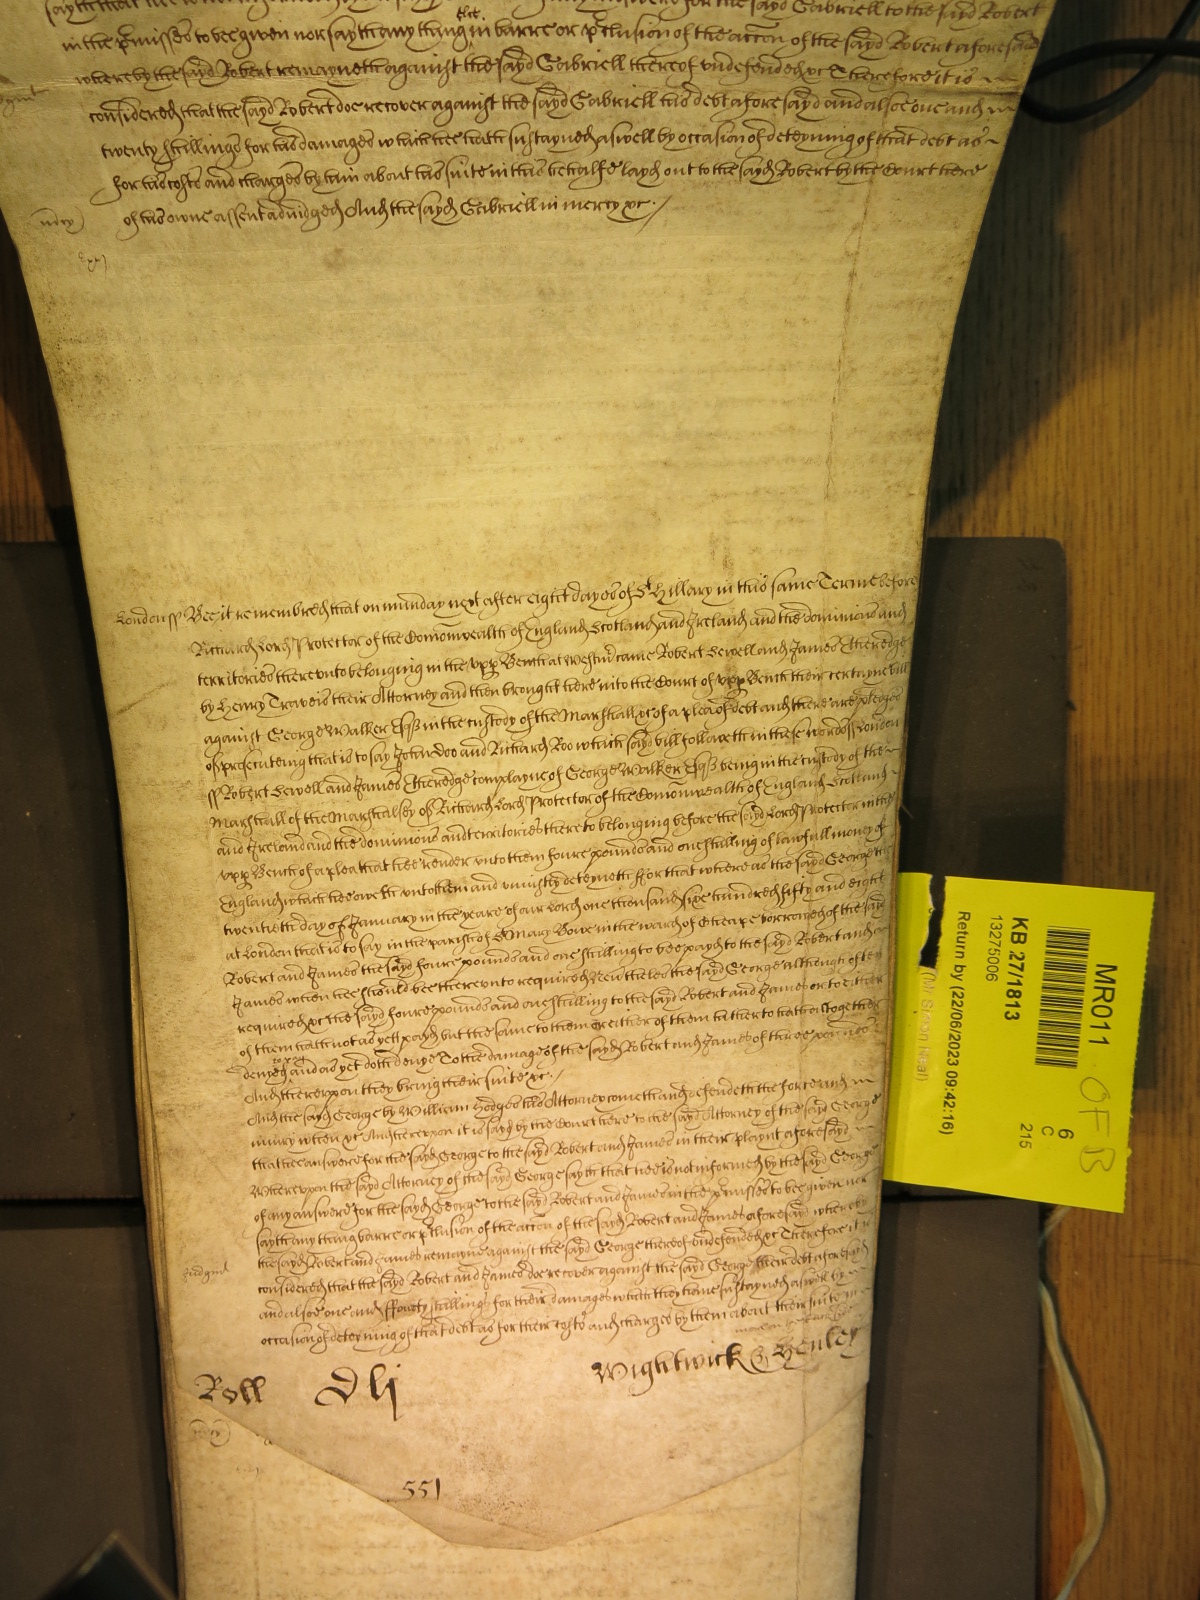 in the p'misses to bee given nor sayth any thing else in barre or p'clusion of the accon of the sayd Robert aforesayd
whereby the sayd Robert remayneth against the sayd Gabriell thereof undefended &c Therefore it is
considered that the sayd Robert doe recover against the sayd Gabriell his debt aforesayd and alsoe one and
twenty shillings for his damages which hee hath sustayned aswell by occasion of deteyning of that debt as
for his costs and charges by him about his suite in this behalfe layd out to the sayd Robert by the Court here
of his owne assent adiudged And the sayd Gabriell in mercy &c
London ss Bee it remembred that on munday next after eight dayes of St Hillary in this same Terme before
Richard Lord Protector of the Comonwealth of England Scotland and Ireland and the dominions and
territories thereunto belonging in the upp Bench at Westm' came Robert Sewell and James Etheredge
by Henry Travers their Attorney and then brought here into the Court of upp Bench their certayne bill
against George Walker Esq in the custody of the Marshall &c of a plea of debt and there are pledges
of prosecuting that is to say John Doo and Richard Roo which sayd bill followeth in these words London
ss Robert Sewell and James Etheredge complayne of George Walker Esq being in the custody of the
Marshall of the Marshalsey of Richard Lord Protector of the Comonwealth of England Scotland
and Ireland and the dominions and territories thereto belonging before the sayd Lord Protector in the
upp Bench of a plea that hee render unto them foure pounds and one shilling of lawfull money of
England which hee oweth unto them and uniustly deteyneth For that whereas the sayd George the
twentieth day of January in the yeare of our Lord one thousand six hundred fifty and eight
at London that is to say in the parish of St Mary Bowe in the ward of Cheape borrowed of the sayd
Robert and James the sayd foure pounds and one shilling to bee payd to the sayd Robert and
James when hee should bee thereunto required Nevertheles the sayd George although often
required &c the sayd foure pounds and one shilling to the sayd Robert and James or to either
of them hath not as yet payd but the same to them or either of them hitherto hath altogether
denyed to pay and as yet doth denye To the damage of the sayd Robert and James of three pounds
And thereupon they bring their suite &c
And the sayd George by William Hodges his Attorney cometh and defendeth the force and
iniury when &c And hereupon it is sayd by the Court here to the sayd Attorney of the sayd George
that hee answere for the sayd George to the sayd Robert and James in their playnt aforesayd
Whereupon the sayd Attorney of the sayd George sayth that hee is not informed by the sayd George
of any answere for the sayd George to the sayd Robert and James in the p'misses to bee given nor
sayth any thing barre or p'clusion of the accon of the sayd Robert and James aforesayd whereby
the sayd Robert and James remayne against the sayd George thereof undefended &c Therefore it is
Iudgmt
considered that the sayd Robert and James doe recover against the sayd George their debt aforesayd
and alsoe one and fforty shillings for their damages which they have sustayned aswell by
occasion of deteyning of that debt as for their costs and charges by them about their suite in
Wightwick & Henley
Roll Dlj
551
MR011
OFB
KB 27/1813
13275006
6
C
215
Return by (22/06/2023 09:42:16)
(Mr Simon Neal)